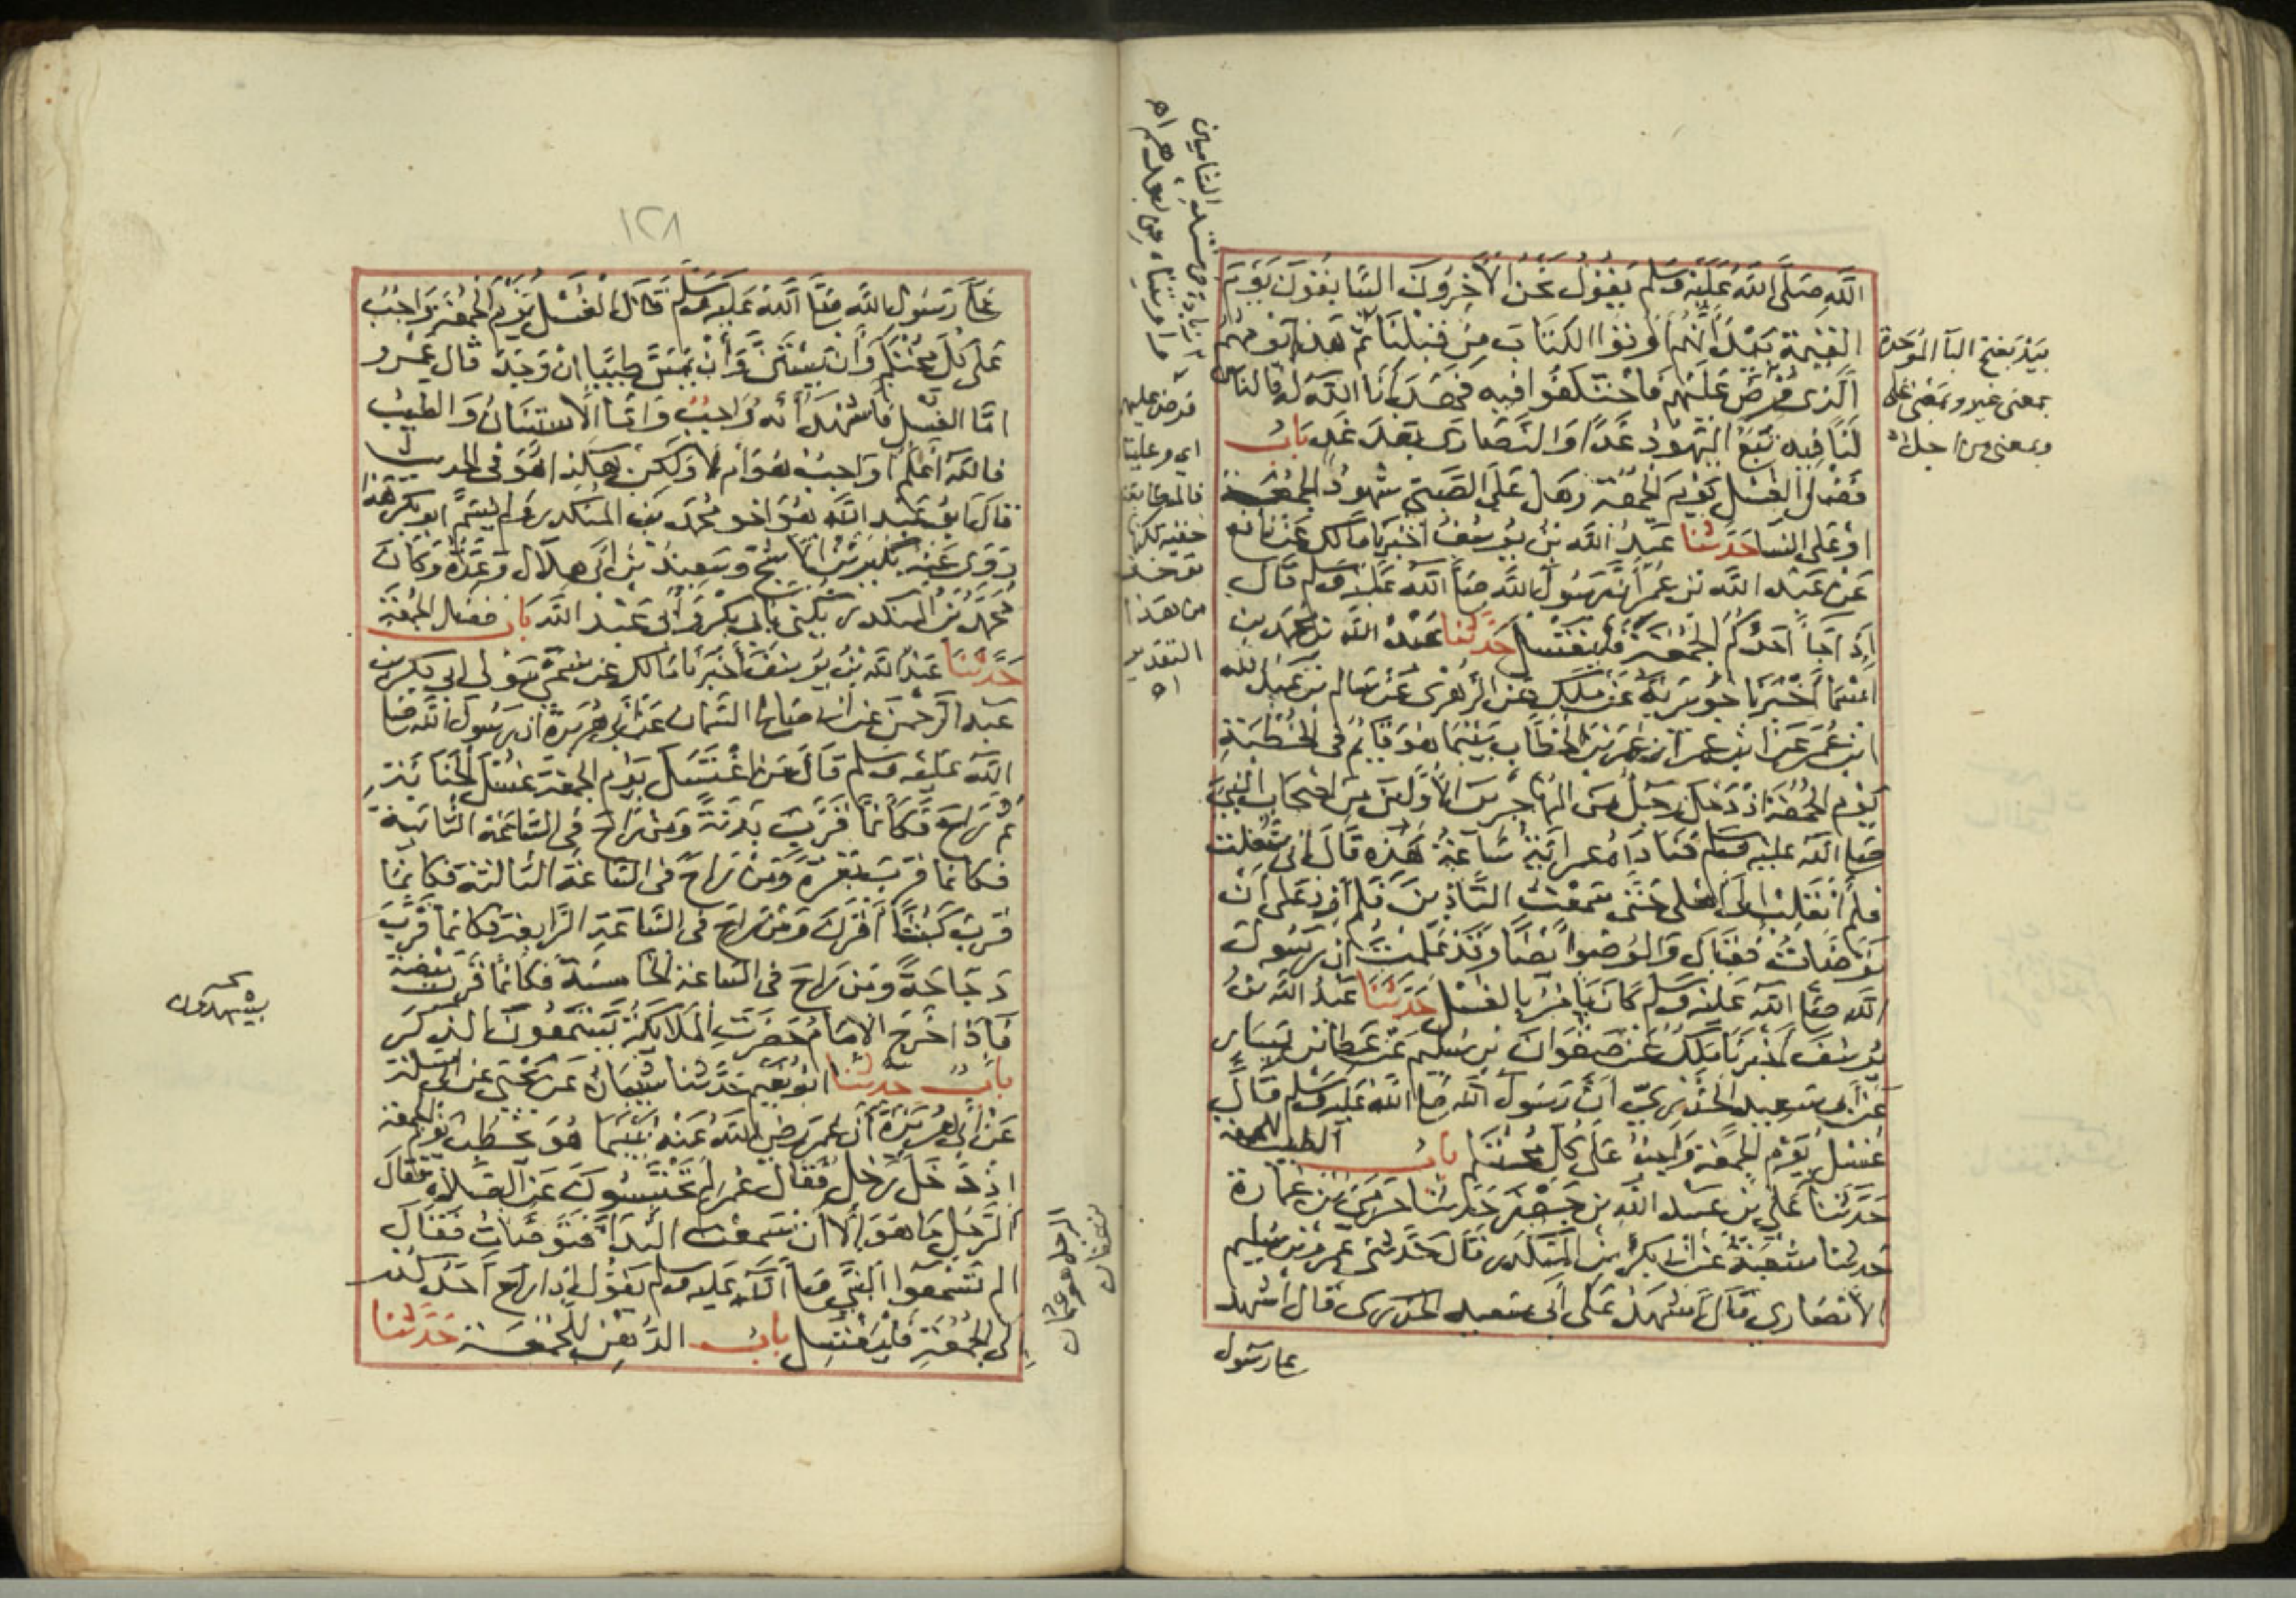 الله صلى الله عليه وسلم يقول نحن الآخرون السابقون يوم
القيمة بيد أنهم أوتوا الكتاب من قبلنا ثم هذا يومهم
الذي فرض عليهم فاختلفوا فيه فهدانا الله له فالناس
لنا فيه تبع اليهود غدا والنصارى بعد غد باب
فضل الغسل يوم الجمعة وهل على الصبي شهود الجمعة
او على النسا حدثنا عبد الله بن يوسف اخبرنا مالك عن نافع
عن عبد الله بن عمر أن رسول الله صلى الله عليه وسلم قال
إذا جا أحدكم الجمعة فليغتسل حدثنا عبد الله بن محمد بن
اسما أخبرنا جويرية عن ملك عن الزهري عن سالم بن عبد الله
ابن عمر عن ابن عمر ان عمر بن الخطاب بينما هو قايم في الخطبة
يوم الجمعة اذ دخل رجل من المهاجرين الأولين من اصحاب النبي
صلى الله عليه وسلم فناداه عمر اية ساعة هذه قال اني شغلت
فلم أنقلب الى اهلي حتى سمعت التاذين فلم أزد على أن
توضات فقال والوضوا يضا وقد علمت ان رسول
الله صلى الله عليه وسلم كان يامر بالغسل حدثنا عبد الله بن
يوسف اخبرنا ملك عن صفوان بن سليم عن عطا بن يسار
عن أبي سعيد الخدري أن رسول الله صلى الله عليه وسلم قال
غسل يوم الجمعة واجب على كل محتلم باب الطيب للجمعة
حدثنا علي بن عبد الله بن جعفر حدثنا حرمي بن عمارة
حدثنا شعبة عن ابي بكر بن المنكدر قال حدثني عمرو بن سليم
الأنصاري قال اشهد على أبي سعيد الخدري قال اشهد
على رسول
بيد بفتح البآ الموحدة
بمعنى غير وبمعنى على
وبمعنى من اجل اه
فرض عليهم
اي وعلينا
من هذا
التقدير
اه
١٢٨
على رسول الله صلى الله عليه وسلم قال الغسل يوم الجمعة واجب
على كل محتلم وأن يستن وأن يمس طيبا ان وجد قال عمرو
اما الغسل فأشهد أنه واجب واما الاستنان والطيب
فالله أعلم أواجب هو أم لا ولكن هكذا هو في الحديث
قال ابو عبد الله هو اخو محمد بن المنكدر ولم يسم ابو بكر هذا
روى عنه بكير بن الاشج وسعيد بن ابي هلال وعدة وكان
محمد بن المنكدر يكنى بابي بكر وأبي عبد الله باب فضل الجمعة
حدثنا عبد الله بن يوسف أخبرنا مالك عن سمي مولى ابي بكر بن
عبد الرحمن عن ابي صالح السمان عن ابي هريرة ان رسول الله صلى
الله عليه وسلم قال من اغتسل يوم الجمعة غسل الجنابة
ثم راح فكأنما قرب بدنة ومن راح في الساعة الثانية
فكانما قرب بقرة ومن راح في الساعة الثالثة فكانما
قرب كبشا أقرن ومن راح في الساعة الرابعة فكانما قرب
دجاجة ومن راح في الساعة الخامسة فكأنما قرب بيضة
فإذا خرج الامام حضرت الملايكة يستمعون الذكر
باب حدثنا ابو نعيم حدثنا شيبان عن يحيى عن ابي سلمة
عن أبي هريرة أن عمر رضي الله عنه بينما هو يخطب يوم الجمعة
اذ دخل رجل فقال عمر لم تحتبسون عن الصلاة فقال
الرجل ما هو إلا أن سمعت الندا فتوضات فقال
الم تسمعوا النبي صلى الله عليه وسلم يقول إذا راح احدكم
إلى الجمعة فليغتسل باب الدهن للجمعة حدثنا
الرجل هو عثمان
بن عفان